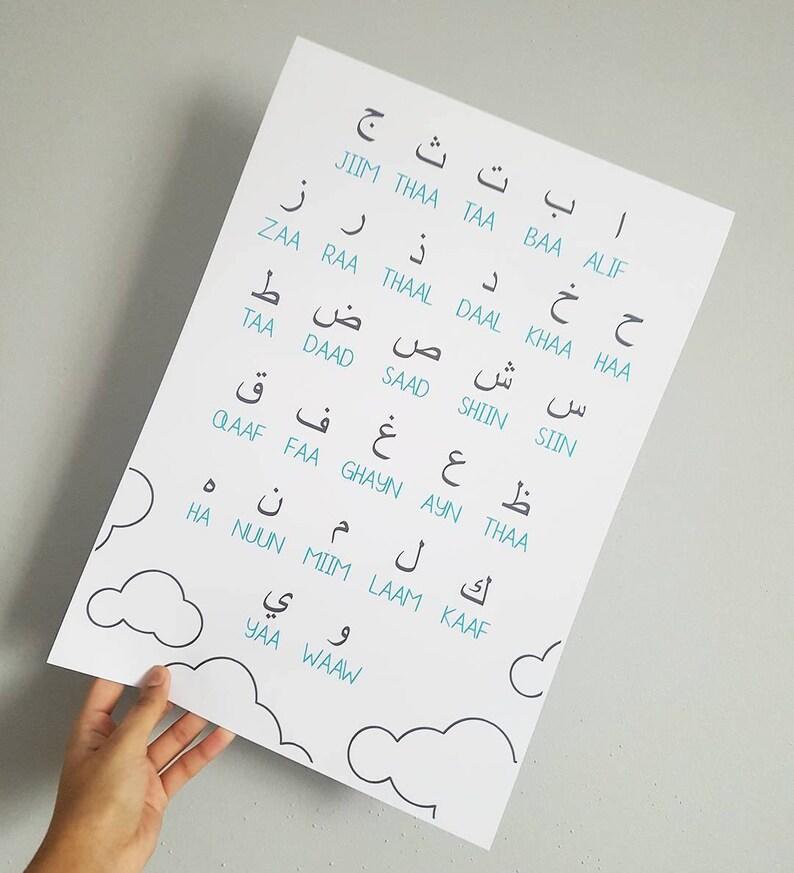 ا ب ت ث ج
JIIM THAA TAA BAA ALIF
ح خ د ذ ر ز
ZAA RAA THAAL DAAL KHAA HAA
س ش ص ض ط
TAA DAAD SAAD SHIIN SIIN
ظ ع غ ف ق
QAAF FAA GHAYN AYN THAA
ك ل م ن ه
HA NUUN MIIM LAAM KAAF
و ي
YAA WAAW